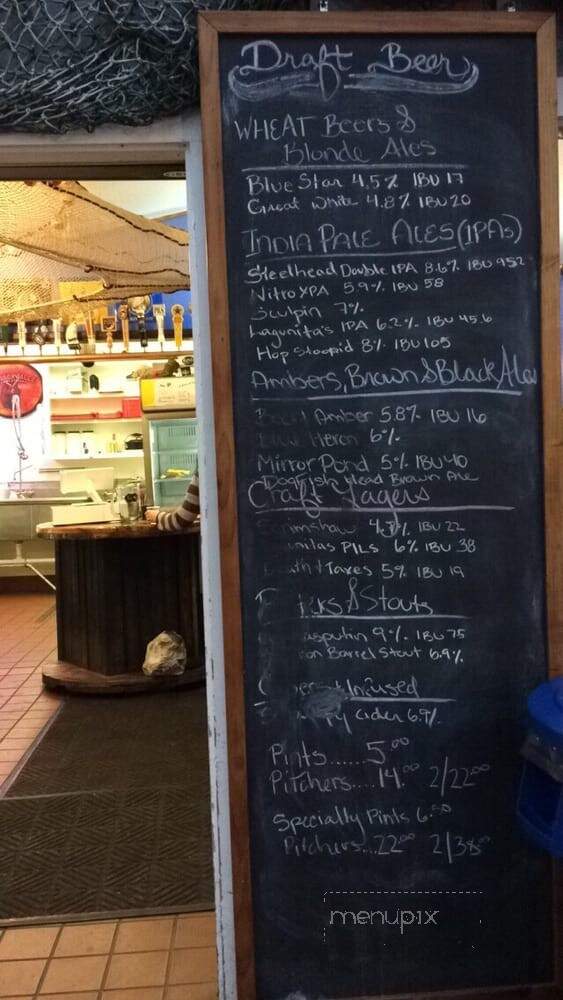 Draft Beer
WHEAT Beers &
Blonde Ales
Blue Star 4.5% IBU 17
Great White 4.8% IBU 20
INDIA PALE ALES (IPAs)
Steelhead Double IPA 8.6% IBU
Nitro XPA 5.9% IBU 58
Sculpin 7%
Lagunita's IPA 6.2% IBU 45.6
Hop Stoopid 8% IBU 105
Ambers, Brown & Black Ales
Amber 5.8% IBU 16
Heron 6%
Mirror Pond 5% IBU 40
Dogfish Head Brown Ale
Craft Lagers
IBU 22
PILS 6% IBU 38
Taxes 5% IBU 19
& Stouts
asputin 9% IBU 75
on Barrel Stout 6.9%
Infused
Cider 6.9%
Pints......5.00
Pitchers....14.00 2/22.00
Specialty Pints 6.50
Pitchers...22.00 2/38.00
menupix